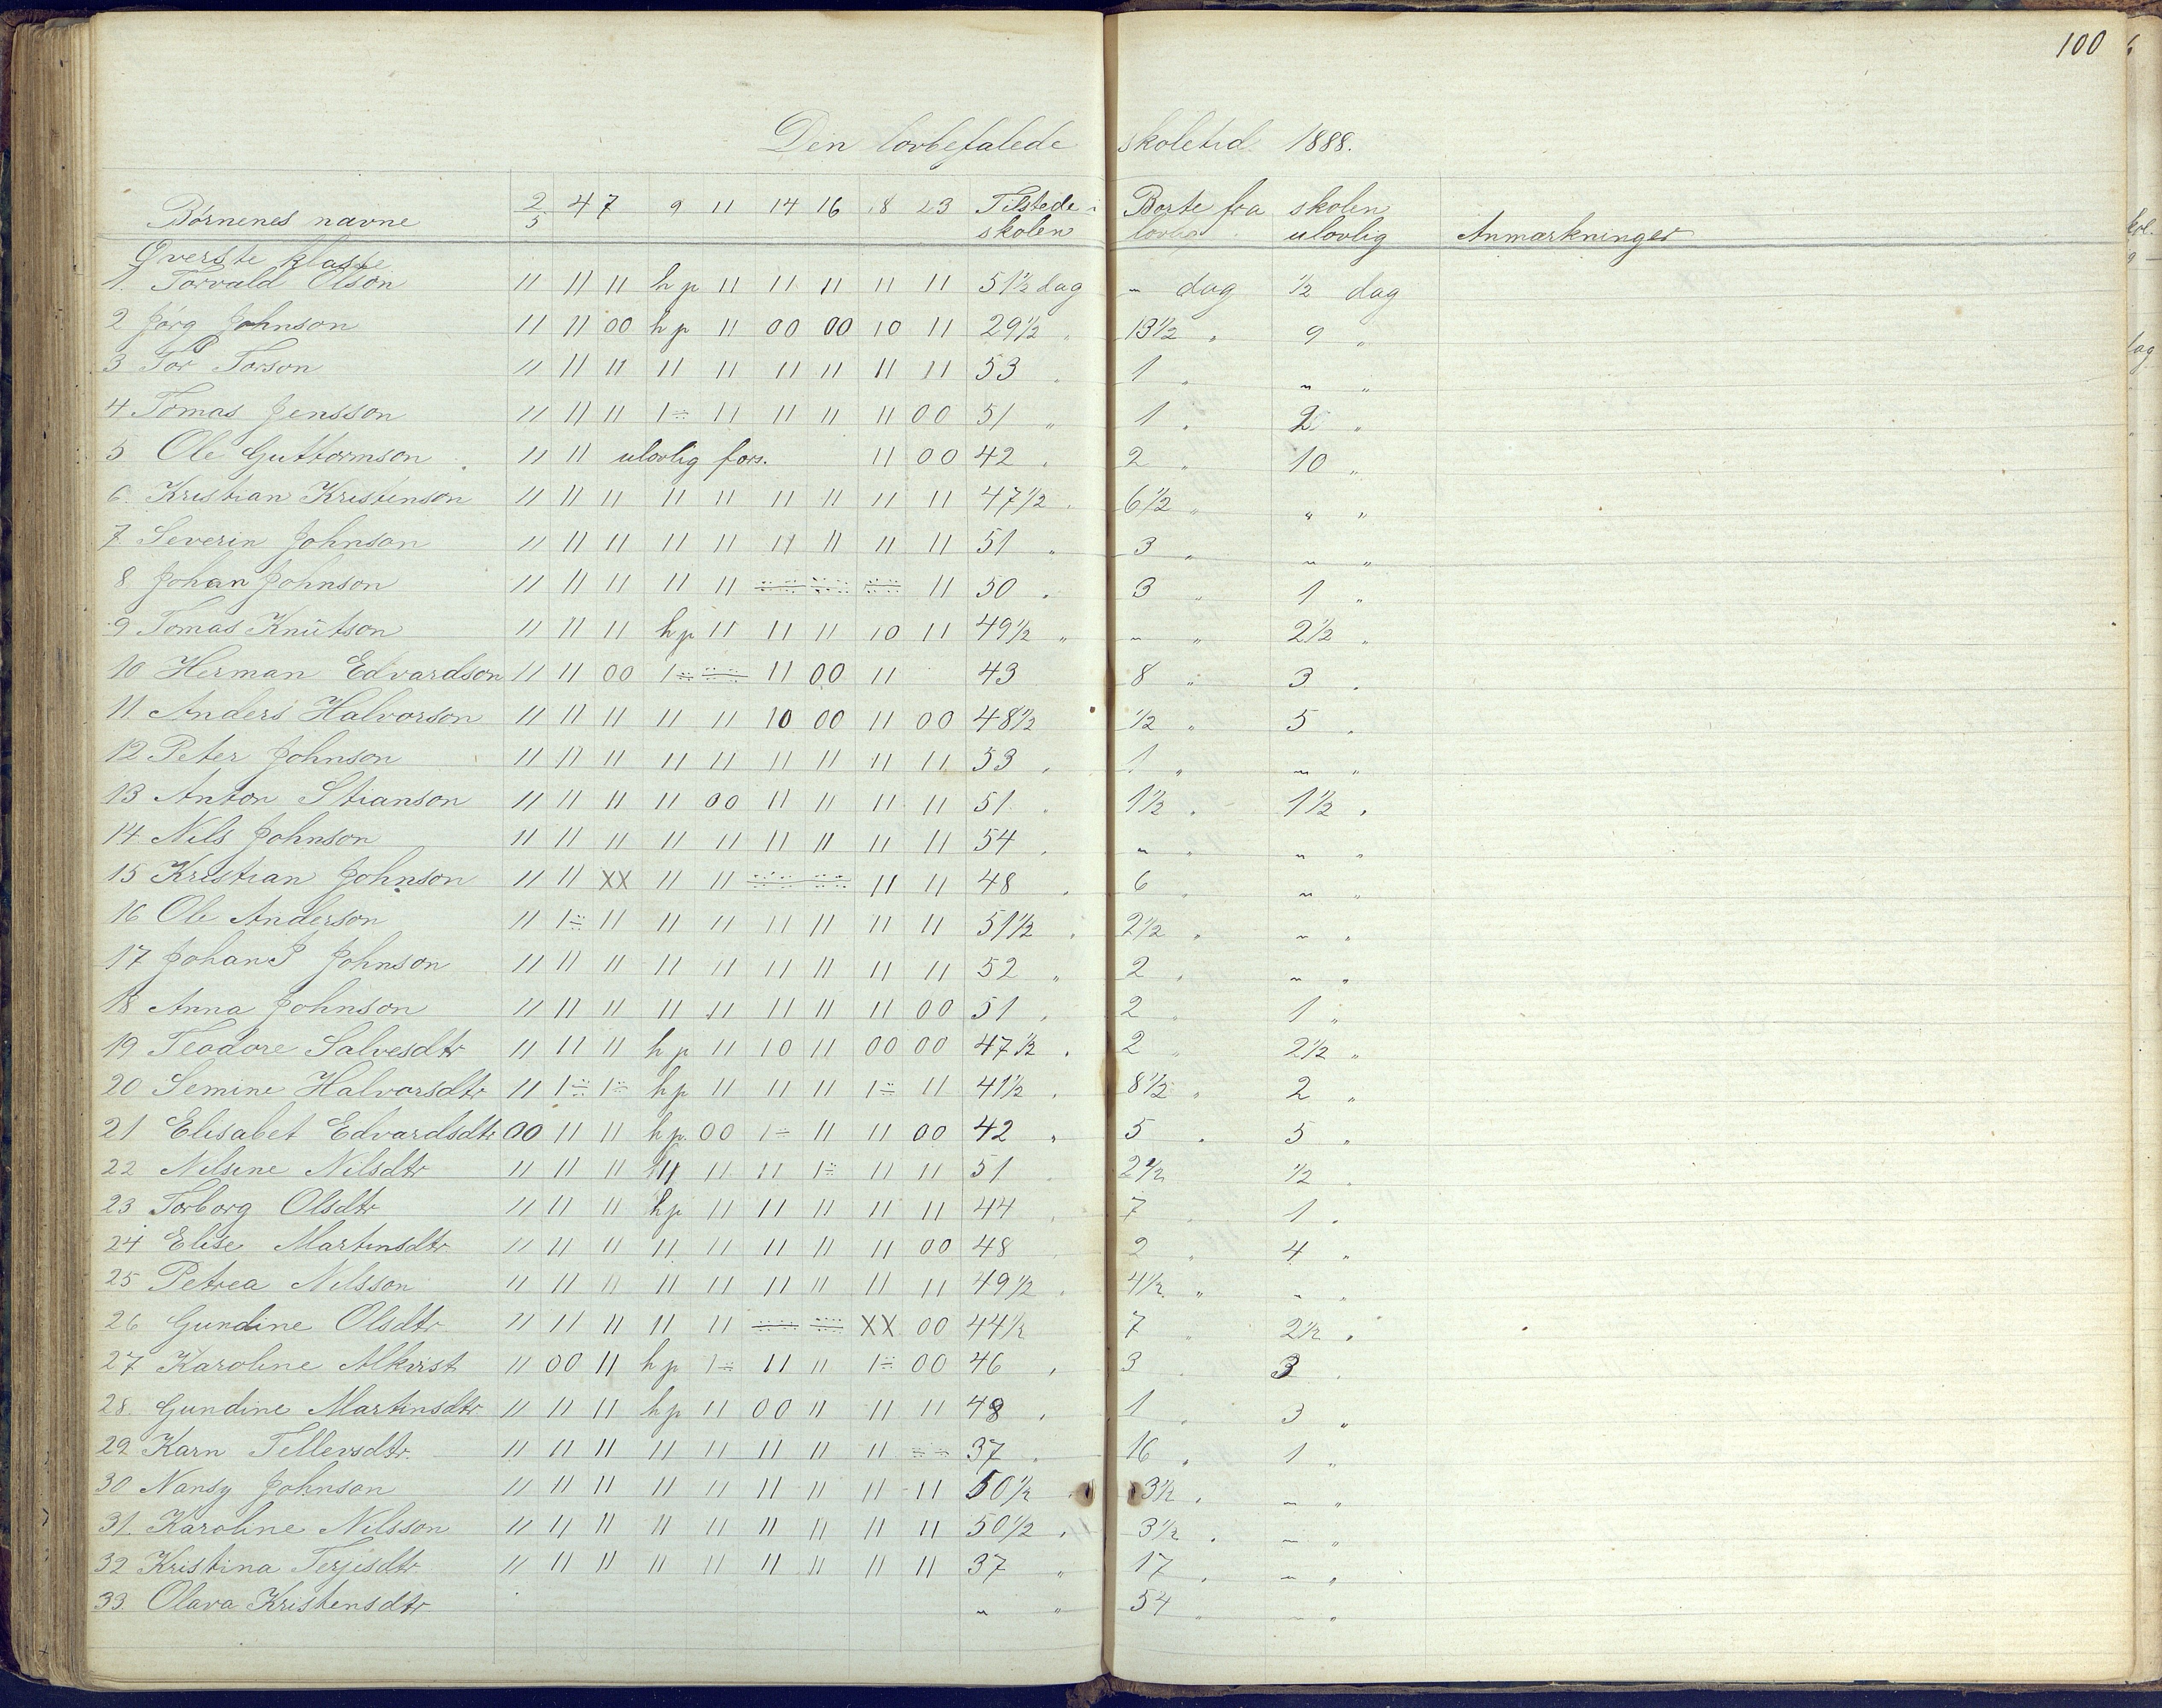 100
Den lovbefalede skoletid 1888.
Børnenes navne 2/5 4 7 9 11 14 16 18 23 Tilstede i skolen Borte fra skolen lovlig ulovlig Anmærkninger
Øverste klasse
1. Torvald Olson 11 11 11 h p 11 11 11 11 11 51½ dag - dag ½ dag
2 Jørg Johnson 11 11 00 h p 11 00 00 10 11 29½ " 13½ " 9 "
3 Tor Torson 11 11 11 11 11 11 11 11 11 53 " 1 " " "
4 Tomas Jensson 11 11 11 1÷ 11 11 11 11 00 51 " 1 " 2 "
5 Ole Guttormson 11 11 ulovlig fors. 11 00 42 " 2 " 10 "
6. Kristian Kristenson 11 11 11 11 11 11 11 11 11 47½ " 6½ " " "
7. Severin Johnson 11 11 11 11 11 11 11 11 11 51 " 3 " " "
8 Johan Johnson 11 11 11 11 11 ÷÷ ÷÷ ÷÷ 11 50 " 3 " 1 "
9 Tomas Knutson 11 11 11 h p 11 11 11 10 11 49½ " " " 2½ "
10 Herman Edvardson 11 11 00 1÷ ÷÷ 11 00 11 43 8 " 3 "
11. Anders Halvorson 11 11 11 11 11 10 00 11 00 48½ ½ " 5 "
12 Peter Johnson 11 11 11 11 11 11 11 11 11 53 " 1 " " "
13 Anton Stianson 11 11 11 11 00 11 11 11 11 51 " 1½ " 1½ "
14 Nils Johnson 11 11 11 11 11 11 11 11 11 54 " " " " "
15 Kristian Johnson 11 11 XX 11 11 ÷÷ ÷÷ 11 11 48 " 6 " " "
16 Ole Anderson 11 1÷ 11 11 11 11 11 11 11 51½ " 2½ " " "
17 Johan P Johnson 11 11 11 11 11 11 11 11 11 52 " 2 " " "
18 Anna Johnson 11 11 11 11 11 11 11 11 00 51 " 2 " 1 "
19 Teodore Salvesdtr 11 11 11 h p 11 10 11 00 00 47½ " 2 " 2½ "
20 Semine Halvorsdtr 11 1÷ 1÷ h p 11 11 11 1÷ 11 41½ " 8½ " 2 "
21 Elisabet Edvardsdtr 00 11 11 h p. 00 1÷ 11 11 00 42 " 5 " 5 "
22 Nilsine Nilsdtr 11 11 11 11 11 11 1÷ 11 11 51 " 2½ ½ "
23 Torborg Olsdtr 11 11 11 h p 11 11 11 11 11 44 " 7 " 1 "
24 Elise Martinsdtr 11 11 11 11 11 11 11 11 00 48 " 2 " 4 "
25 Petrea Nilsson 11 11 11 11 11 11 11 11 11 49½ " 4½ " " "
26 Gundine Olsdtr 11 11 11 11 11 ÷÷ ÷÷ XX 00 44½ 7 " 2½ "
27 Karoline Alkvist 11 00 11 h p 1÷ 11 11 1÷ 00 46 " 3 " 3 "
28. Gundine Martinsdtr. 11 11 11 h p 11 00 11 11 11 48 " 1 " 3 "
29 Karn Tellevsdtr. 11 11 11 11 11 11 11 11 ÷÷ 37 " 16 " 1 "
30 Nansy Johnson 11 11 11 11 11 11 11 11 11 50½ " 3½ " " "
31. Karoline Nilsson 11 11 11 11 11 11 11 11 11 50½ " 3½ " " "
32 Kristina Terjesdtr 11 11 11 11 11 11 11 11 11 37 " 17 " " "
33. Olava Kristensdtr " " 54 " " "